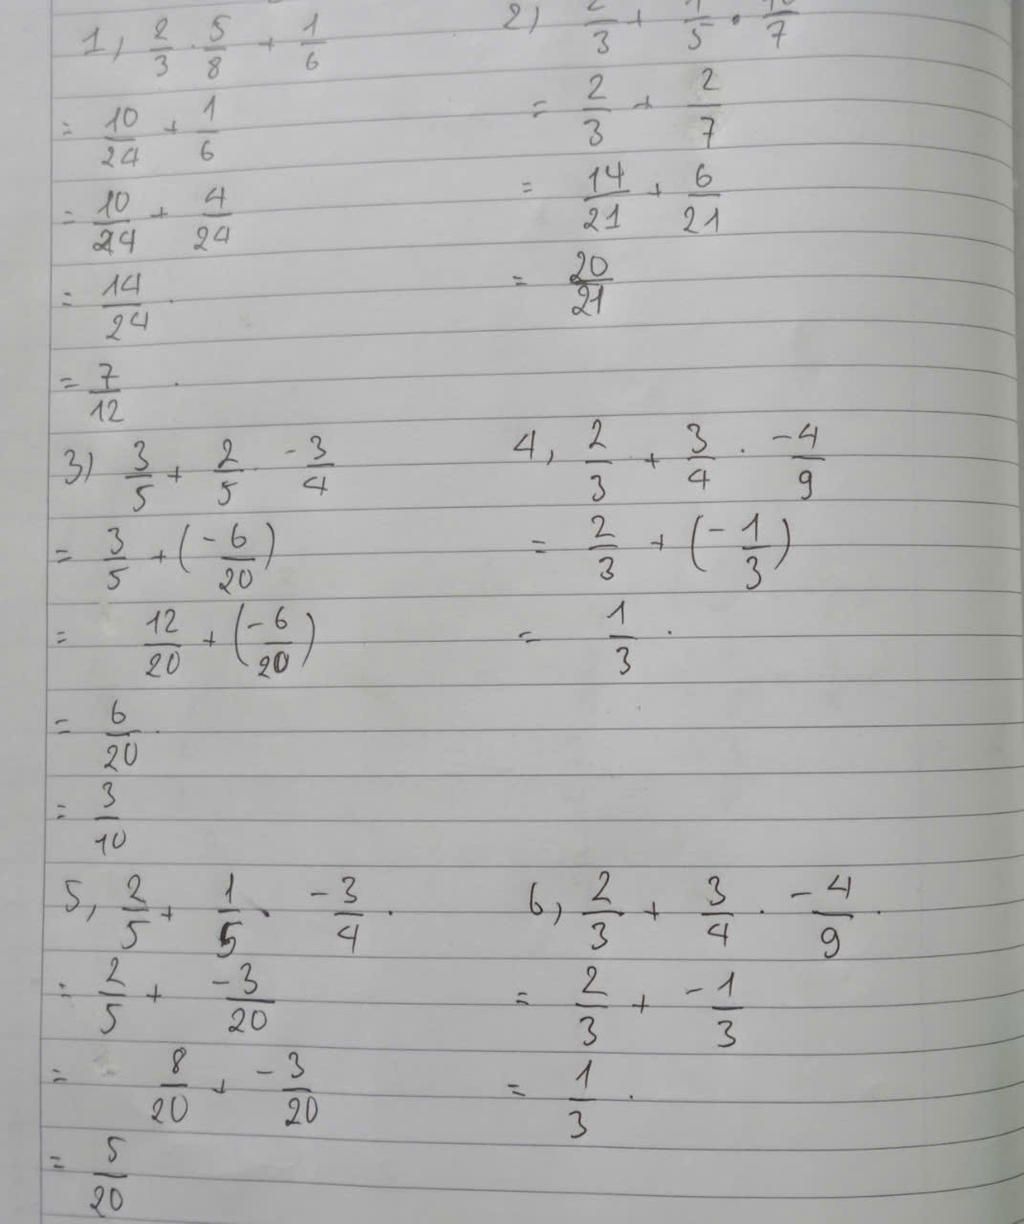 1, 2/3 · 5/8 + 1/6
= 10/24 + 1/6
= 10/24 + 4/24
= 14/24 .
= 7/12 .
2) 2/3 + 1/5 · 10/7
= 2/3 + 2/7
= 14/21 + 6/21
= 20/21
3) 3/5 + 2/5 · -3/4
= 3/5 + (-6/20)
= 12/20 + (-6/20)
= 6/20 .
= 3/10
4, 2/3 + 3/4 · -4/9
= 2/3 + (-1/3)
= 1/3 .
5, 2/5 + 1/5 · -3/4 .
= 2/5 + -3/20
= 8/20 + -3/20
= 5/20
6) 2/3 + 3/4 · -4/9 .
= 2/3 + -1/3
= 1/3 .